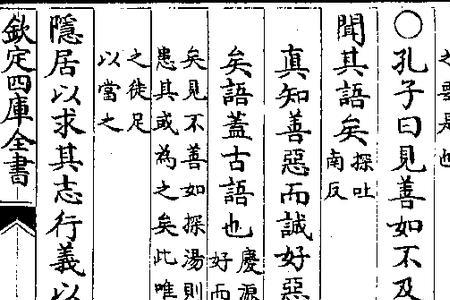 是也
○孔子曰見善如不及
聞其語矣探吐
南反
真知善惡而誠好惡
矣語蓋古語也慶源
好而
矣見不善如探湯則
患其或為之矣此唯
之徒足
以當之
隱居以求其志行義以
欽定四庫全書